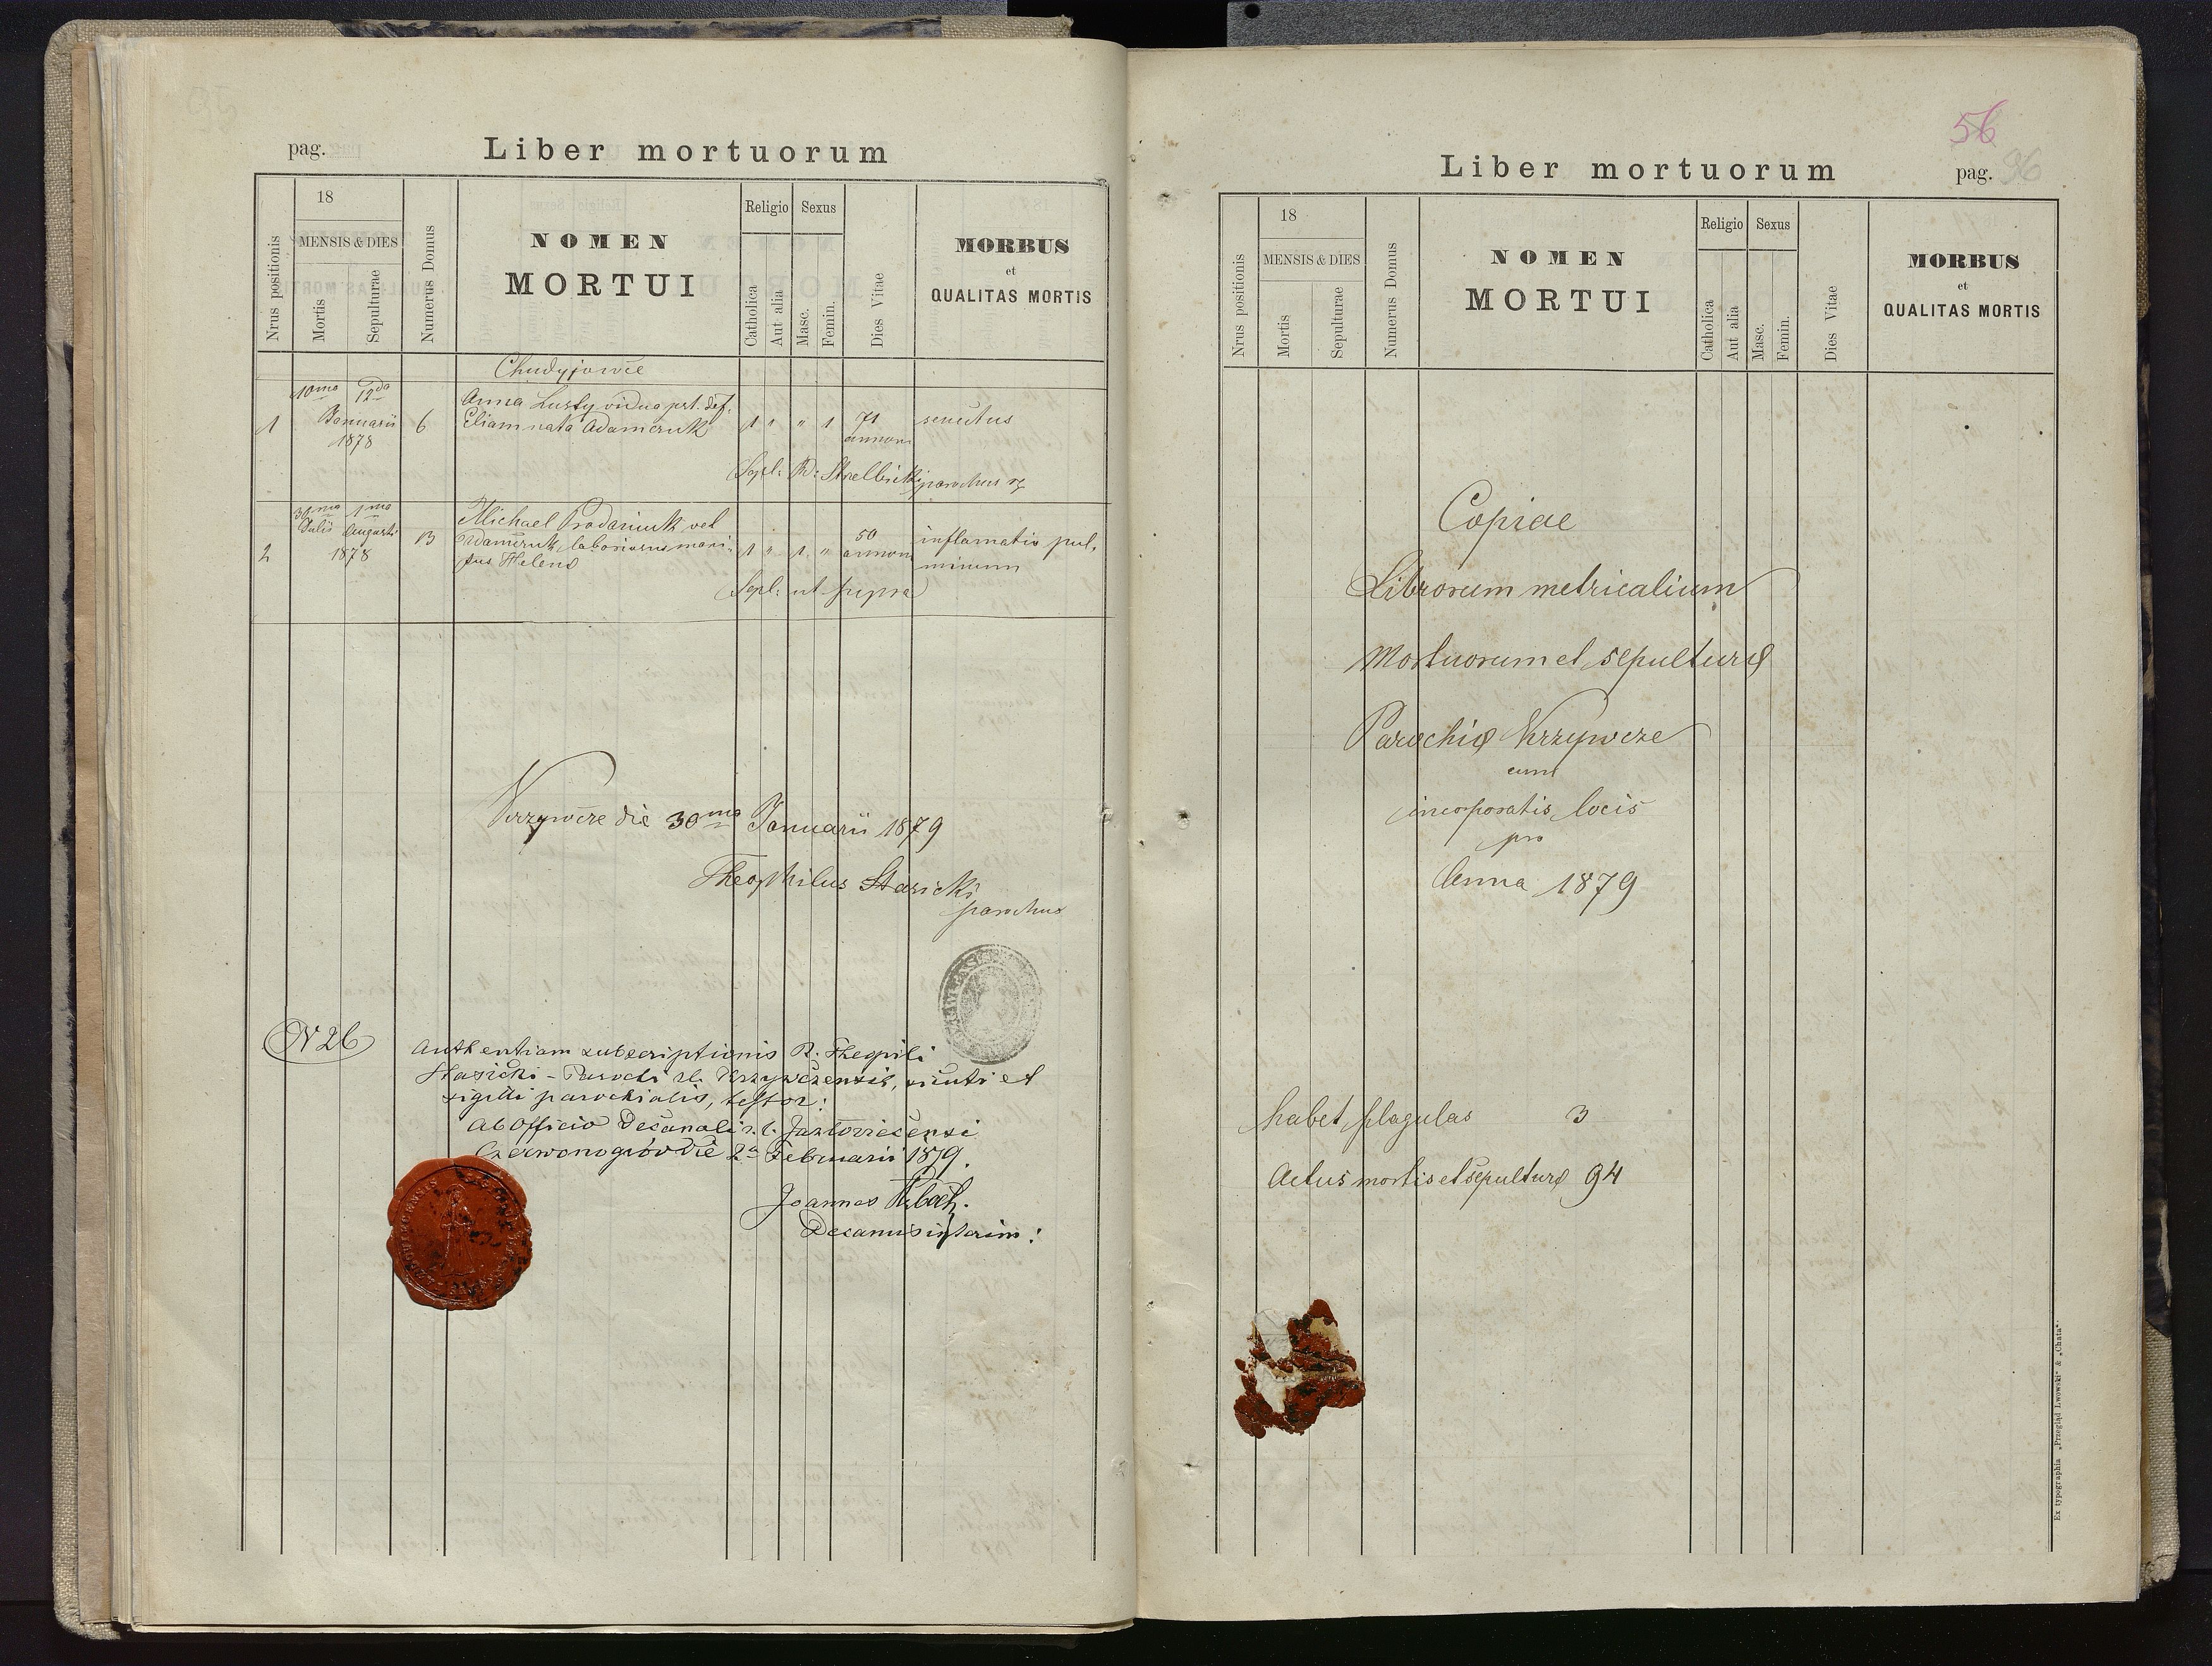 pag.
Liber mortuorum
Nrus positionis
18
MENSIS & DIES
Mortis
Sepulturae
Numerus Domus
NOMEN
MORTUI
Religio
Catholica
Aut alia
Sexus
Masc.
Femin.
Dies Vitae
MORBUS
et
QUALITAS MORTIS
Chudyjowce
10ma 12da
Januarii
1878
1 6 Anna Lusty vidua pst. def.
Eliam nata Adamczuk 1 " " 1 71
annorum senectus
Sepl: Rd: Strelbicki parochus
31ma 1ma
Julii Augusti
1878
2 13 Michael Prodaniuk vel
Adamczuk laboriosus mari-
tus Helenæ 1 " 1 " 50
annorum inflamatio pul-
minum
Sepl: ut supra
Krzywcze die 30ma Januarii 1879
Theophilus Stasicki
parochus
N 26
Authentiam subscriptionis R. Theopili
Stasicki - Parochi r.l. Krzywczensis, sicuti et
sigilli parochialis, testor:
Ab Officio Decanali r. l. Jazłoviecensi
Czerwonogród die 2a Februarii 1879.
Joannes
Decanus interim:
56
Liber mortuorum
pag. 96
Nrus positionis
18
MENSIS & DIES
Mortis
Sepulturae
Numerus Domus
NOMEN
MORTUI
Religio
Catholica
Aut alia
Sexus
Masc.
Femin.
Dies Vitae
MORBUS
et
QUALITAS MORTIS
Copiae
Librorum metricalium
Mortuorum et sepulturæ
Parochiæ Krzywcze
cum
incorporatis locis
pro
Anna 1879
habet plagulas 3
Actus mortis et sepulturæ 94
Ex typographia „Przegląd Lwowski" & „Chata".